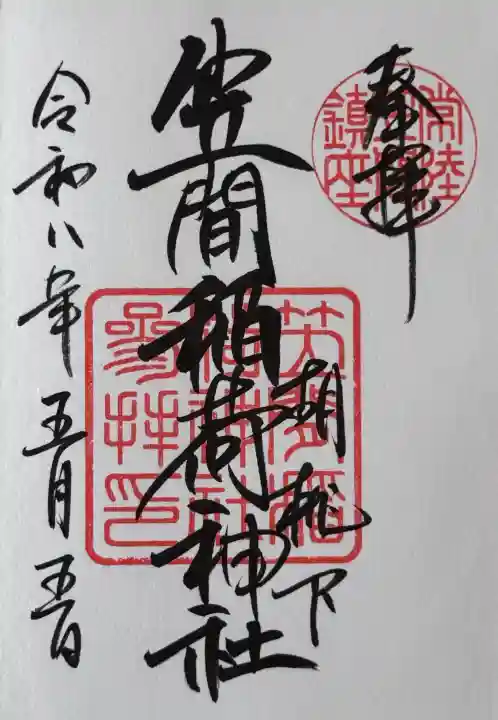 奉拝
胡桃下
笠間稲荷神社
令和八年 五月五日
常陸
鎮座
笠間稲
荷神社
参拝印